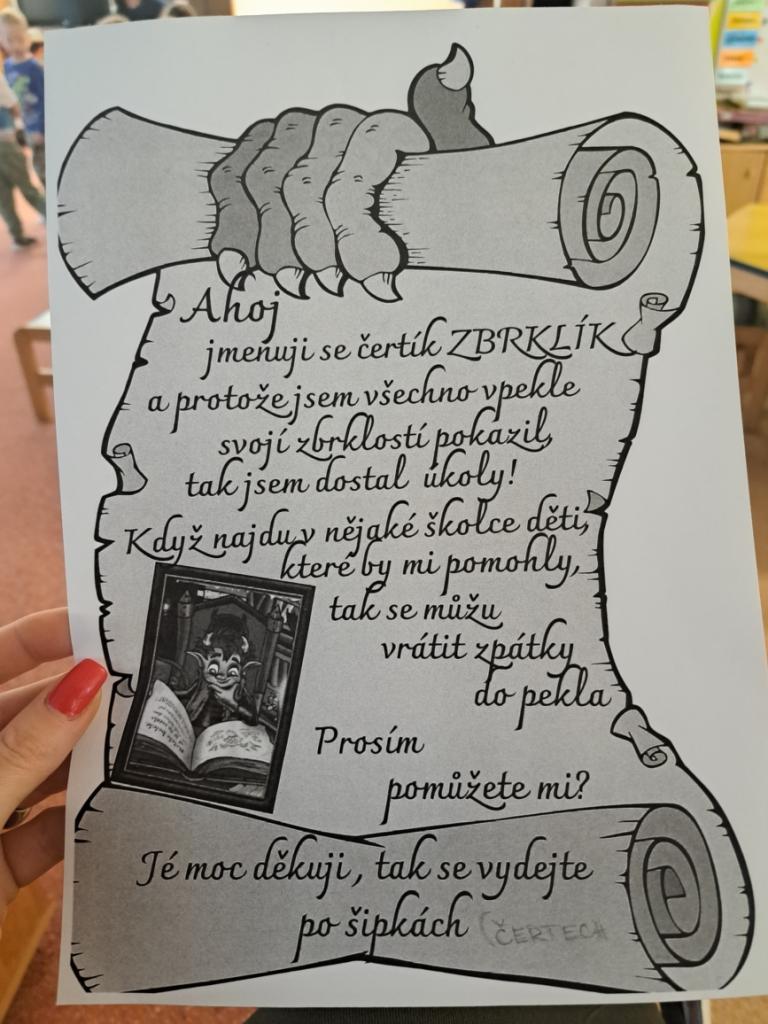 Ahoj
jmenuji se čertík ZBRKLÍK
a protože jsem všechno vpekle
svojí zbrklostí pokazil,
tak jsem dostal úkoly!
Když najdu v nějaké školce děti,
které by mi pomohly,
tak se můžu
vrátit zpátky
do pekla
Prosím
pomůžete mi?
Jé moc děkuji, tak se vydejte
po šipkách (ČERTECH